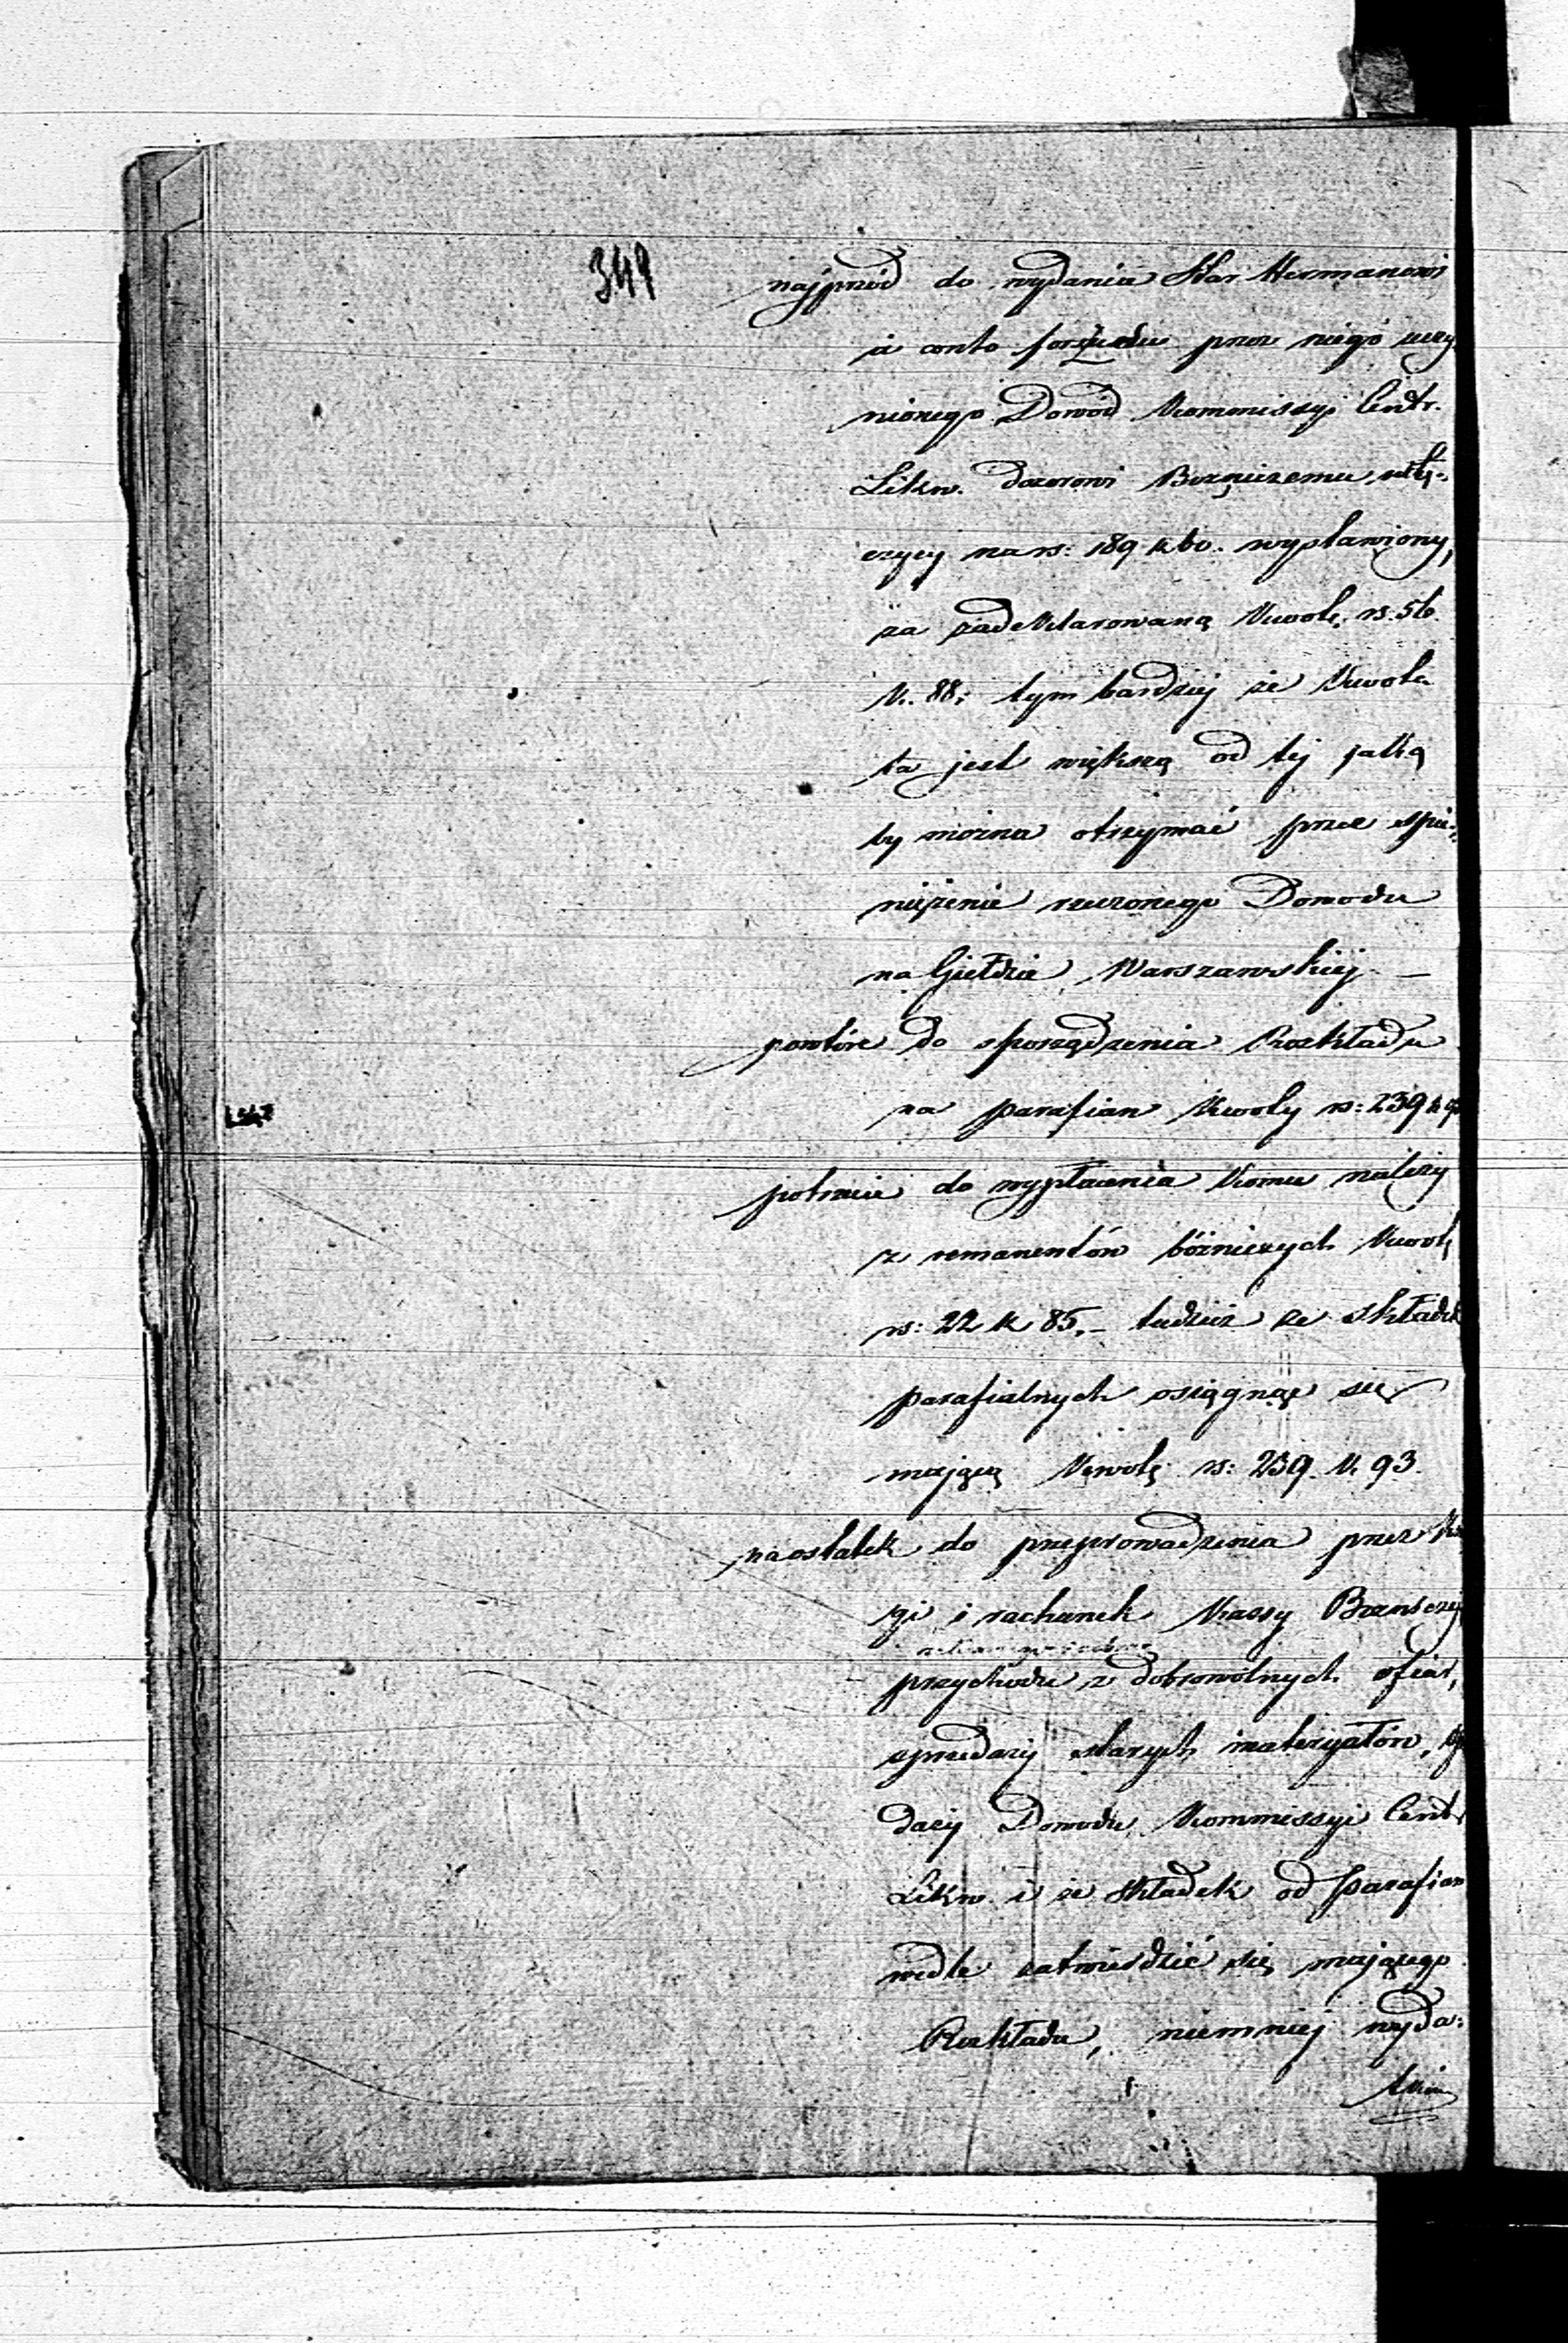 349
najprzód do wydania Star. Hermanowi
a conto forszusu przez niego uczy
nionego Dowód Kommissyi Centr.
Likw. dozorowi Bożniczemu w Łę-
czycy na rs: 189 k 60. wystawiony,
za zadeklarowaną Kwotę rs. 56.
k. 88; tym bardziej że Kwota
ta jest większą od tej jaką
by można otrzymać przez spie-
niężenie rzeczonego Dowodu
na Giełdzie Warszawskiej. —
powtóre do sporządzenia Rozkładu
na parafian Kwoty rs: 239 k 93
potrzecie do wypłacenia komu należy
z remanentów bóżniczych Kwotę
rs: 22 k 85, – tudzież ze składek
parafialnych osiągnąć się
mającą Kwotę rs: 239. k. 93.
naostatek do przeprowadzenia przez
gi i rachunek Kassy Bóżniczej
przychodu z dobrowolnych ofiar,
sprzedaży starych materyałów,
daży Dowodu Kommissyi Centr
Likw. i ze składek od parafian
wedle zatwierdzić się mającego
Rozkładu, niemniej wyda-